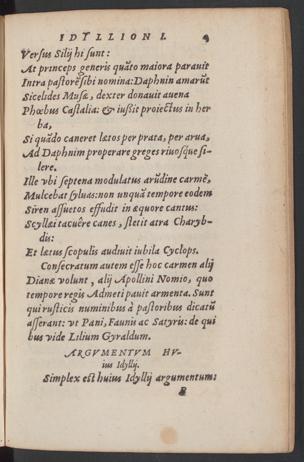 IDYLLION I.
Versus Silij hi sunt:
At princeps generis quãto maiora parauit
Intra pastorẽ sibi nomina: Daphnin amarũt
Sicelides Musæ, dexter donauit auena
Phœbus Castalia: & iussit proiectus in her
ba,
Si quãdo caneret lætos per prata, per arua,
Ad Daphnim properare greges riuosque si-
lere.
Ille vbi septena modulatus arũdine carmẽ,
Mulcebat syluas: non unquã tempore eodem
Siren assuetos effudit in æquore cantus:
Scyllæi tacuêre canes, stetit atra Charyb-
dis:
Et lætus scopulis audiuit iubila Cyclops.
Consecratum autem esse hoc carmen alij
Dianæ volunt, alij Apollini Nomio, quo
tempore regis Admeti pauit armenta. Sunt
qui rusticis numinibus à pastoribus dicatũ
asserant: vt Pani, Faunis ac Satyris: de qui
bus vide Lilium Gyraldum.
ARGVMENTVM HV-
ius Idyllij.
Simplex est huius Idyllij argumentum:
B